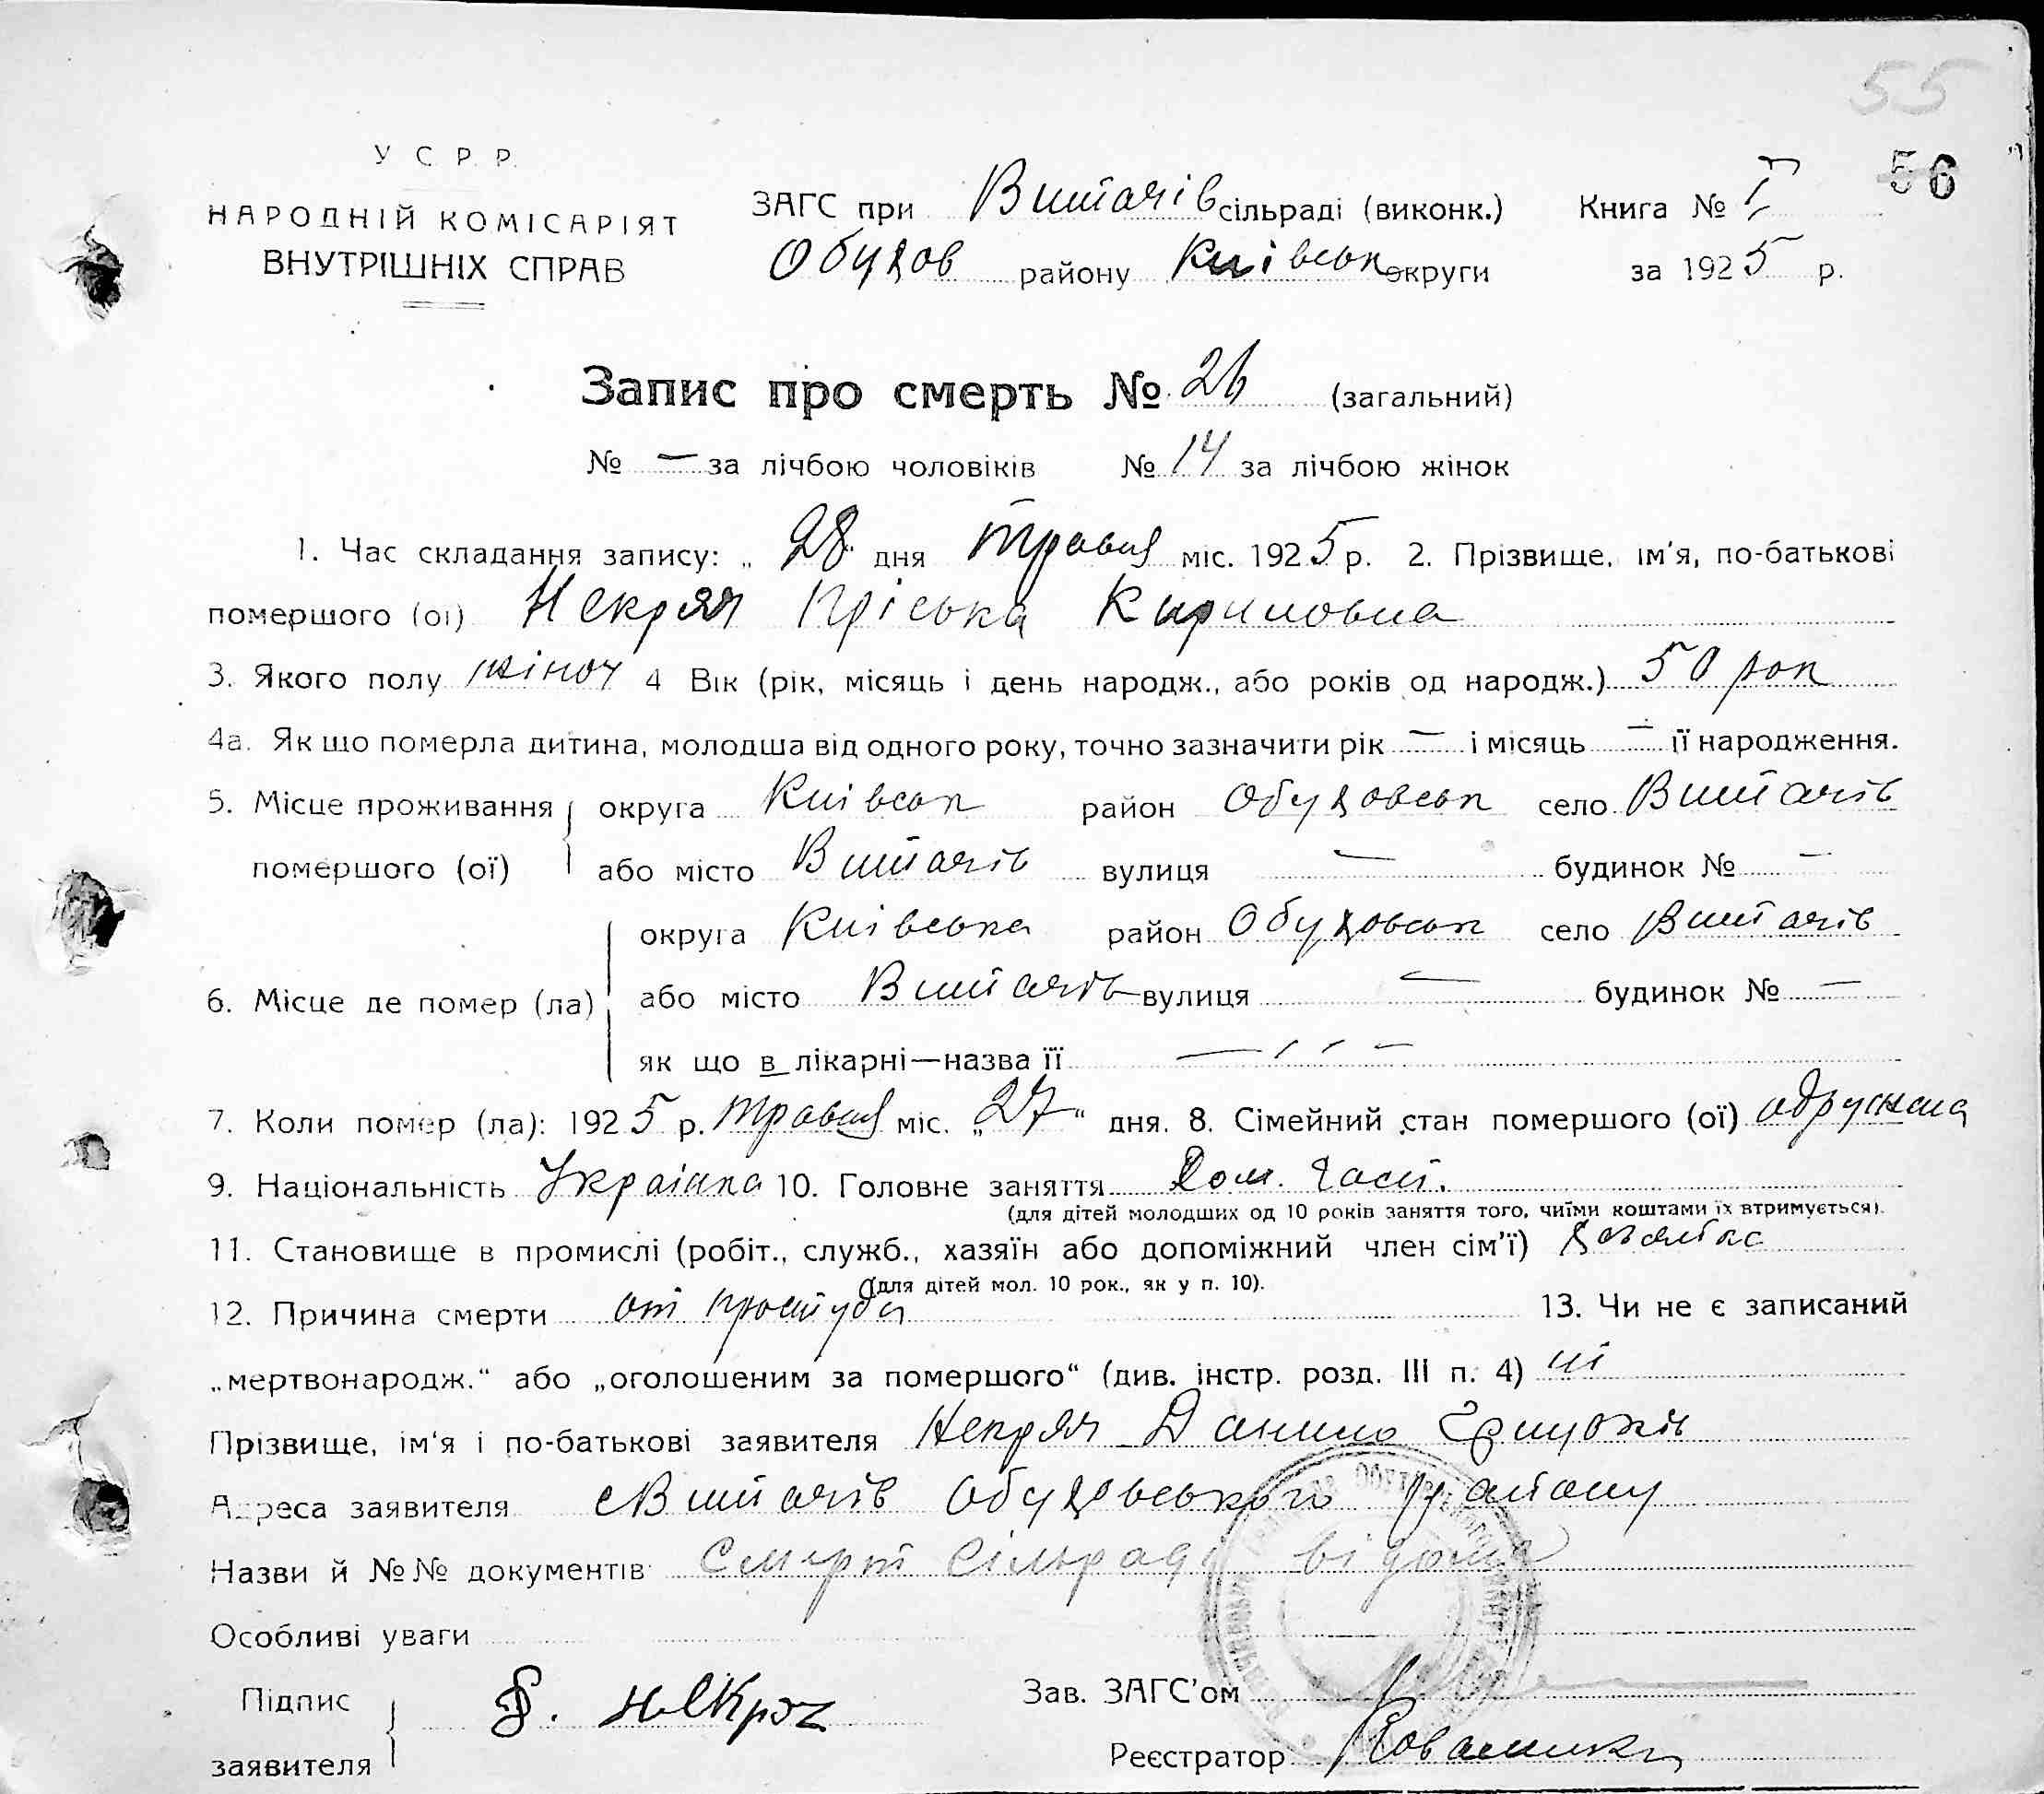 55
56
У С Р. Р.
НАРОДНІЙ КОМІСАРІЯТ
ВНУТРІШНІХ СПРАВ
ЗАГС при Витачів сільраді (виконк.) Книга № I
Обухов району Київськ округи за 1925 р.
Запис про смерть № 26 (загальний)
№ — за лічбою чоловіків № 14 за лічбою жінок
1. Час складання запису: „28" дня Травня міс. 1925 р. 2. Прізвище, ім'я, по-батькові
помершого (ої) Некряч Пріська Кириловна
3. Якого полу жіноч 4 Вік (рік, місяць і день народж., або років од народж.) 50 рок
4а. Як що померла дитина, молодша від одного року, точно зазначити рік — і місяць — її народження.
5. Місце проживання округа Київськ район Обуховськ село Витачів
помершого (ої) або місто Витачів вулиця — будинок № —
округа Київська район Обуховськ село Витачів
6. Місце де помер (ла) або місто Витачів вулиця — будинок № —
як що в лікарні—назва її — ׳ ׳ —
7. Коли помер (ла): 1925 р. Травня міс. „27" дня. 8. Сімейний стан помершого (ої) одружена
9. Національність Українка 10. Головне заняття Дом. Госп.
(для дітей молодших од 10 років заняття того, чиїми коштами їх втримується).
11. Становище в промислі (робіт., служб., хазяїн або допоміжний член сім'ї) Хозяйка
(для дітей мол. 10 рок., як у п. 10).
12. Причина смерти от простуди 13. Чи не є записаний
„мертвонародж." або „оголошеним за помершого" (див. інстр. розд. III п. 4) ні
Прізвище, ім'я і по-батькові заявителя Некряч Данило Грицьків
Адреса заявителя с Витачів Обуховського району
Назви й №№ документів Смерть Сільраді відома
Особливі уваги
Підпис Д. Некряч Зав. ЗАГС'ом
заявителя Реєстратор